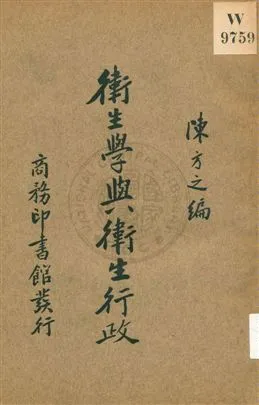 W
9759
陳方之編
衛生學與衛生行政
商務印書館發行